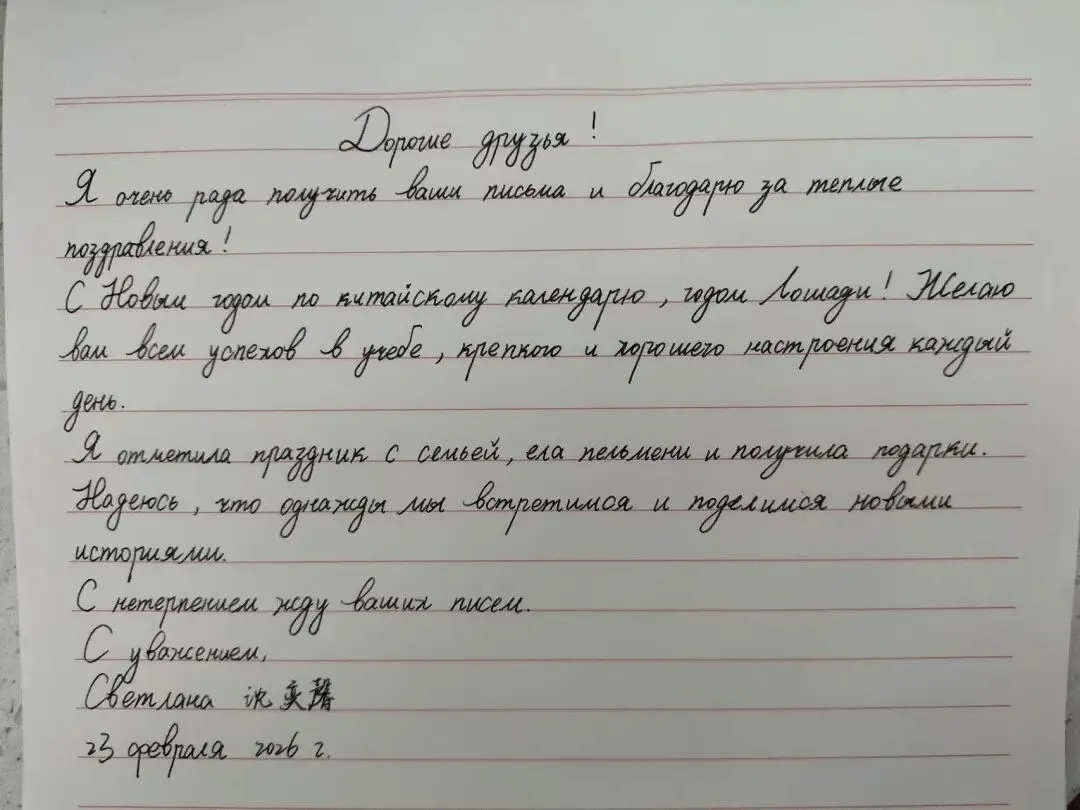 Дорогие друзья!
Я очень рада получить ваши письма и благодарю за теплые
поздравления!
С Новым годом по китайскому календарю, годом Лошади! Желаю
вам всем успехов в учебе, крепкого и хорошего настроения каждый
день.
Я отметила праздник с семьей, ела пельмени и получила подарки.
Надеюсь, что однажды мы встретимся и поделимся новыми
историями.
С нетерпением жду ваших писем.
С уважением,
Светлана 沈奕馨
23 февраля 2026 г.